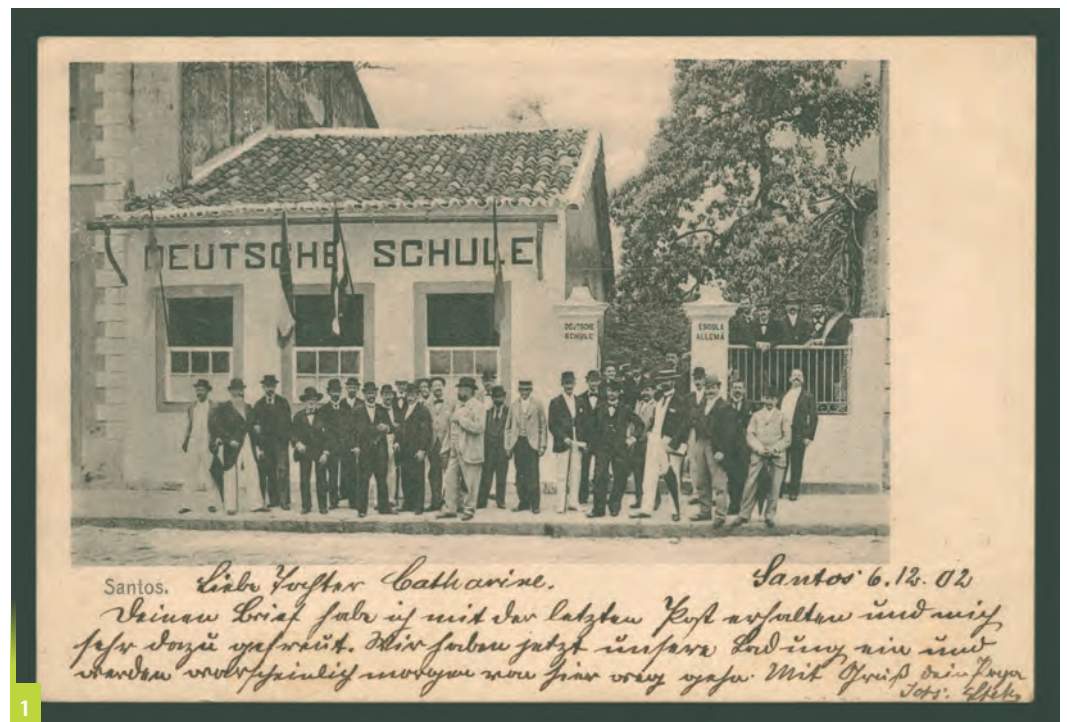 DEUTSCHE SCHULE
DEUTSCHE
SCHULE
ESCOLA
ALLEMÃ
Santos. Liebe Tochter Catharine. Santos 6.12.02
Deinen Brief habe ich mit der letzten Post erhalten und mich
sehr dazu gefreut. Wir haben jetzt unsere Ladung ein und
werden warscheinlich morgen von hier weg gehn. Mit Gruß dein Papa
1